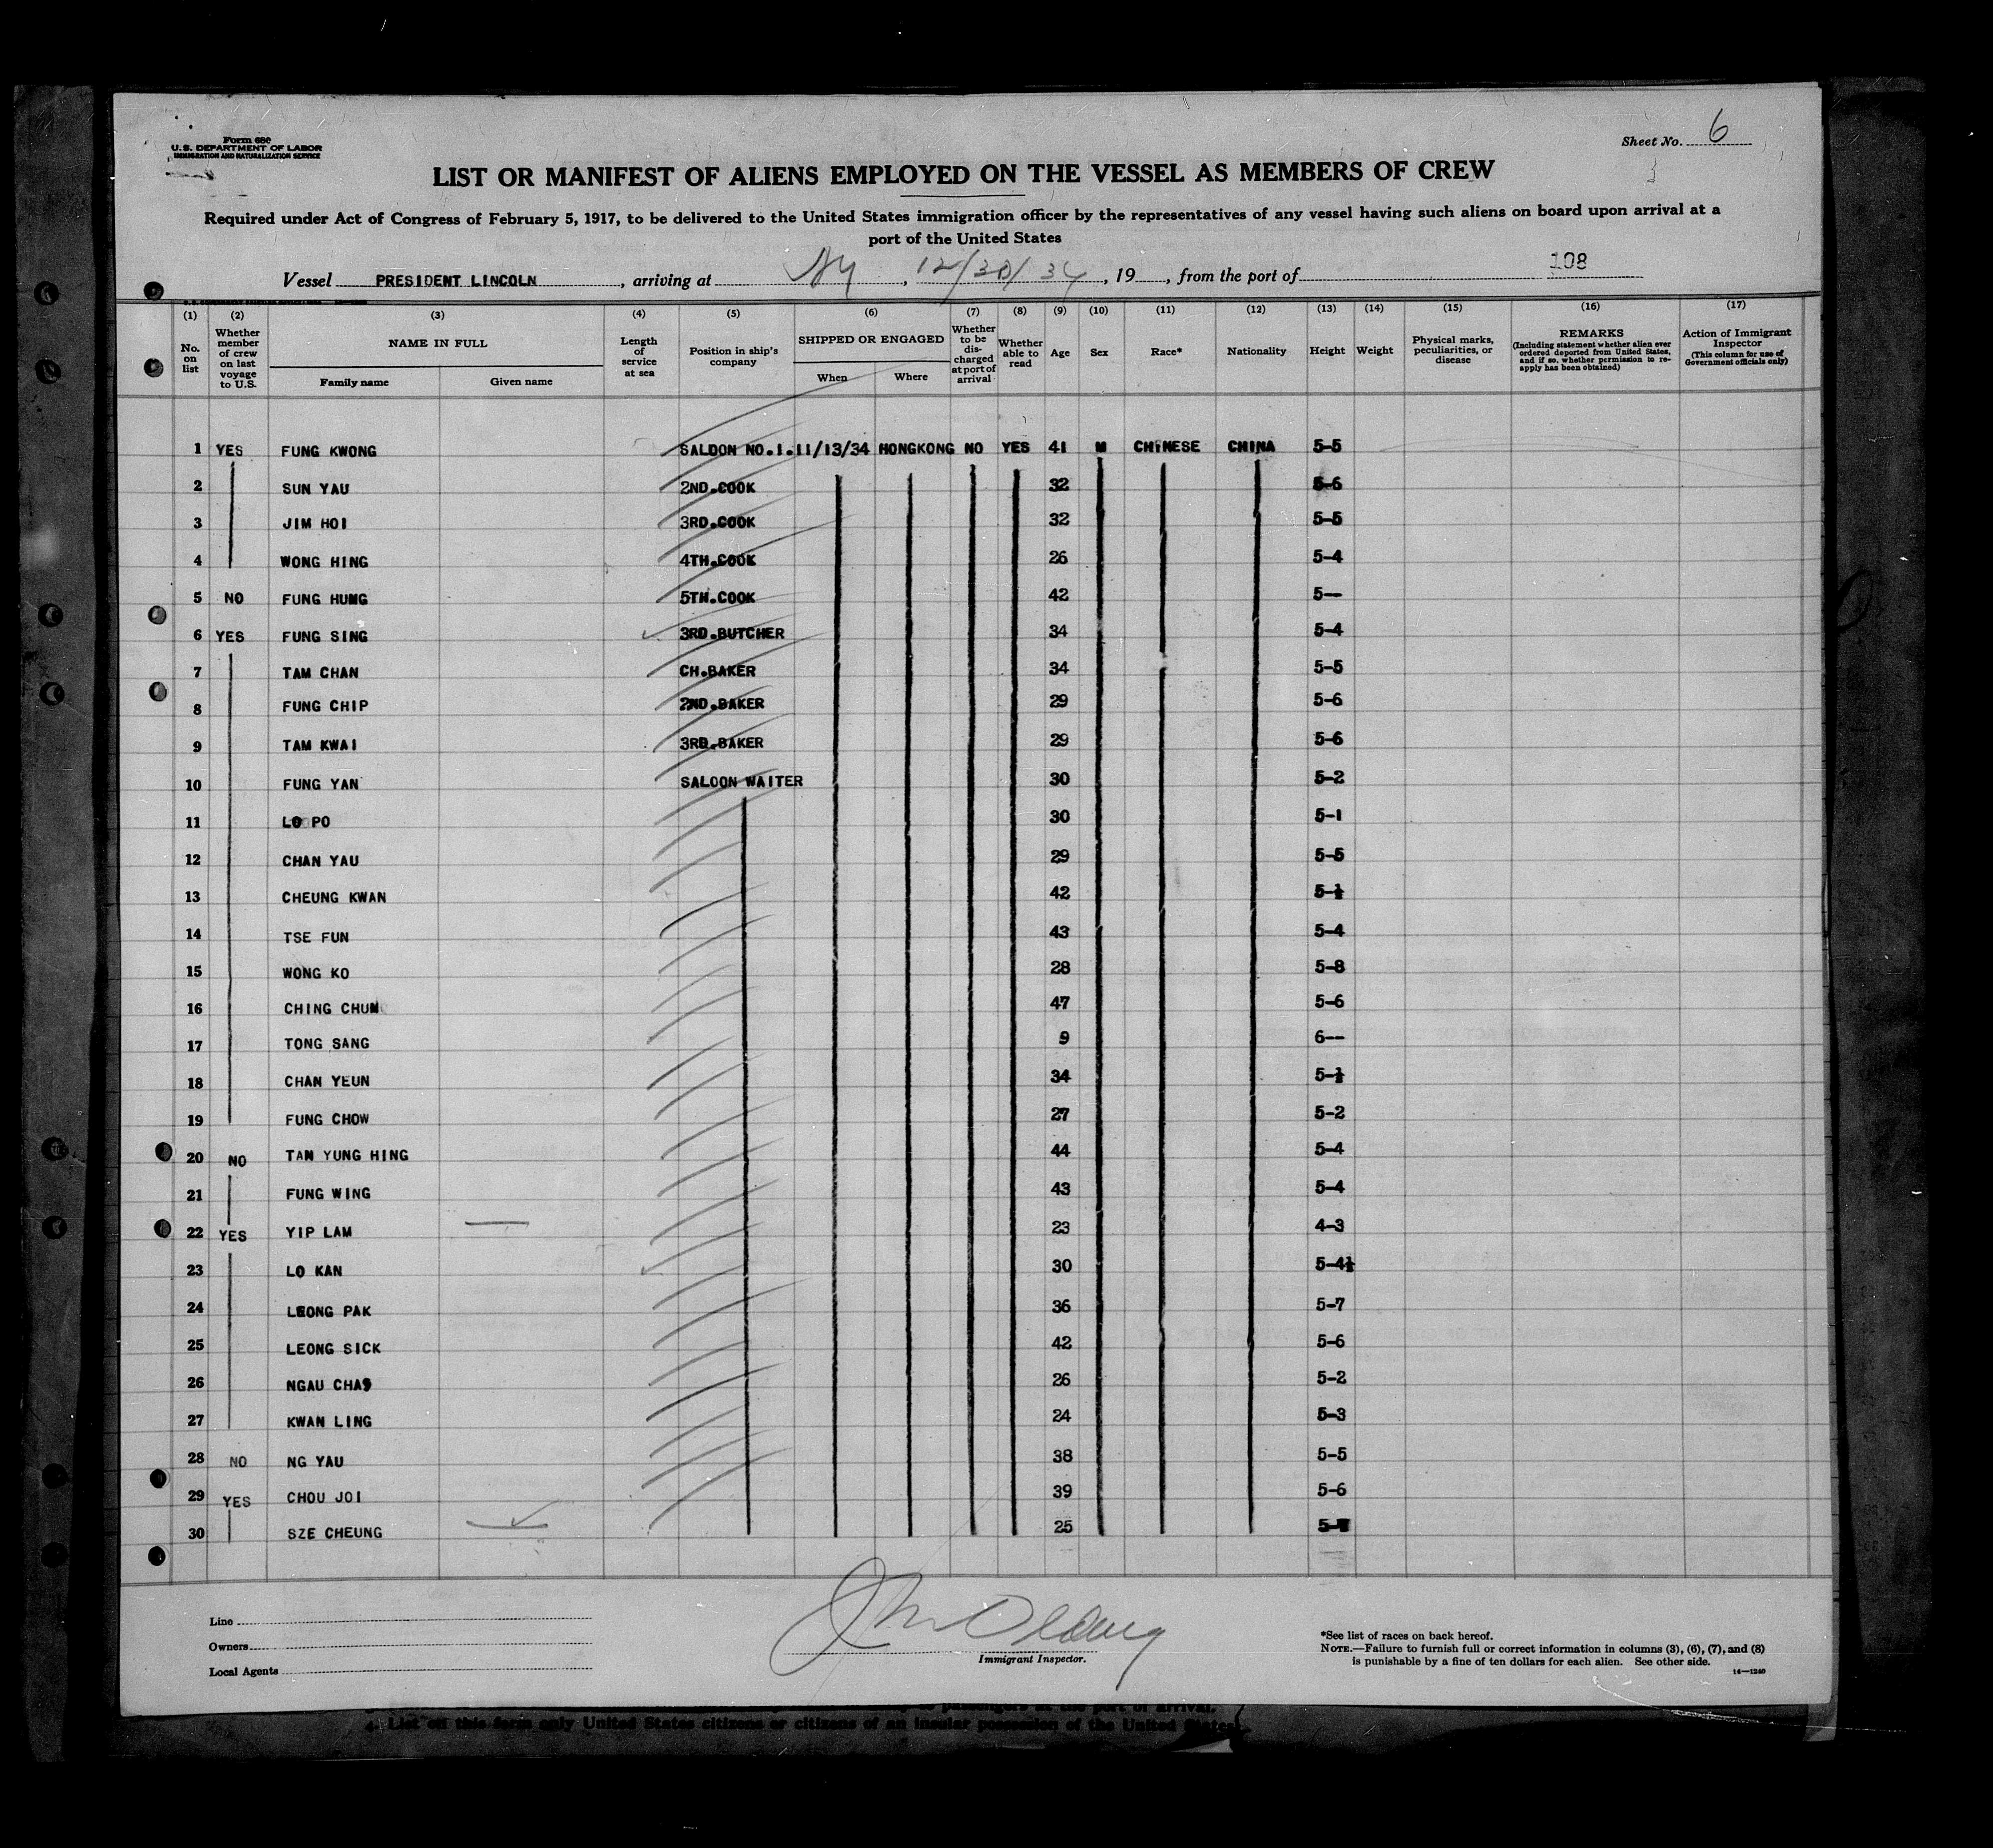 Form 680
U. S. DEPARTMENT OF LABOR
IMMIGRATION AND NATURALIZATION SERVICE
Sheet No. 6
LIST OR MANIFEST OF ALIENS EMPLOYED ON THE VESSEL AS MEMBERS OF CREW
Required under Act of Congress of February 5, 1917, to be delivered to the United States immigration officer by the representatives of any vessel having such aliens on board upon arrival at a
port of the United States
Vessel PRESIDENT LINCOLN, arriving at NY, 12/30/34, 19, from the port of 108
(1) (2) (3) (4) (5) (6) (7) (8) (9) (10) (11) (12) (13) (14) (15) (16) (17)
No. on list
Whether member of crew on last voyage to U.S.
NAME IN FULL
Family name Given name
Length of service at sea
Position in ship's company
SHIPPED OR ENGAGED
When Where
Whether to be discharged at port of arrival
Whether able to read
Age
Sex
Race*
Nationality
Height
Weight
Physical marks, peculiarities, or disease
REMARKS
(Including statement whether alien ever ordered deported from United States, and if so, whether permission to re-apply has been obtained)
Action of Immigrant Inspector
(This column for use of Government officials only)
1 YES FUNG KWONG SALOON NO.1. 11/13/34 HONGKONG NO YES 41 M CHINESE CHINA 5-5
2 SUN YAU 2ND.COOK 32 5-6
3 JIM HOI 3RD.COOK 32 5-5
4 WONG HING 4TH.COOK 26 5-4
5 NO FUNG HUNG 5TH.COOK 42 5--
6 YES FUNG SING 3RD.BUTCHER 34 5-4
7 TAM CHAN CH.BAKER 34 5-5
8 FUNG CHIP 2ND.BAKER 29 5-6
9 TAM KWAI 3RD.BAKER 29 5-6
10 FUNG YAN SALOON WAITER 30 5-2
11 LO PO 30 5-1
12 CHAN YAU 29 5-5
13 CHEUNG KWAN 42 5-½
14 TSE FUN 43 5-4
15 WONG KO 28 5-8
16 CHING CHUN 47 5-6
17 TONG SANG 9 6--
18 CHAN YEUN 34 5-½
19 FUNG CHOW 27 5-2
20 NO TAN YUNG HING 44 5-4
21 FUNG WING 43 5-4
22 YES YIP LAM 23 4-3
23 LO KAN 30 5-4½
24 LEONG PAK 36 5-7
25 LEONG SICK 42 5-6
26 NGAU 26 5-2
27 KWAN LING 24 5-3
28 NO NG YAU 38 5-5
29 YES CHOU JOI 39 5-6
30 SZE CHEUNG 25
Line
Owners
Local Agents
Immigrant Inspector.
*See list of races on back hereof.
NOTE.—Failure to furnish full or correct information in columns (3), (6), (7), and (8)
is punishable by a fine of ten dollars for each alien. See other side.
14—1240
4. List on this form only United States citizens or citizens of an insular possession of the United States